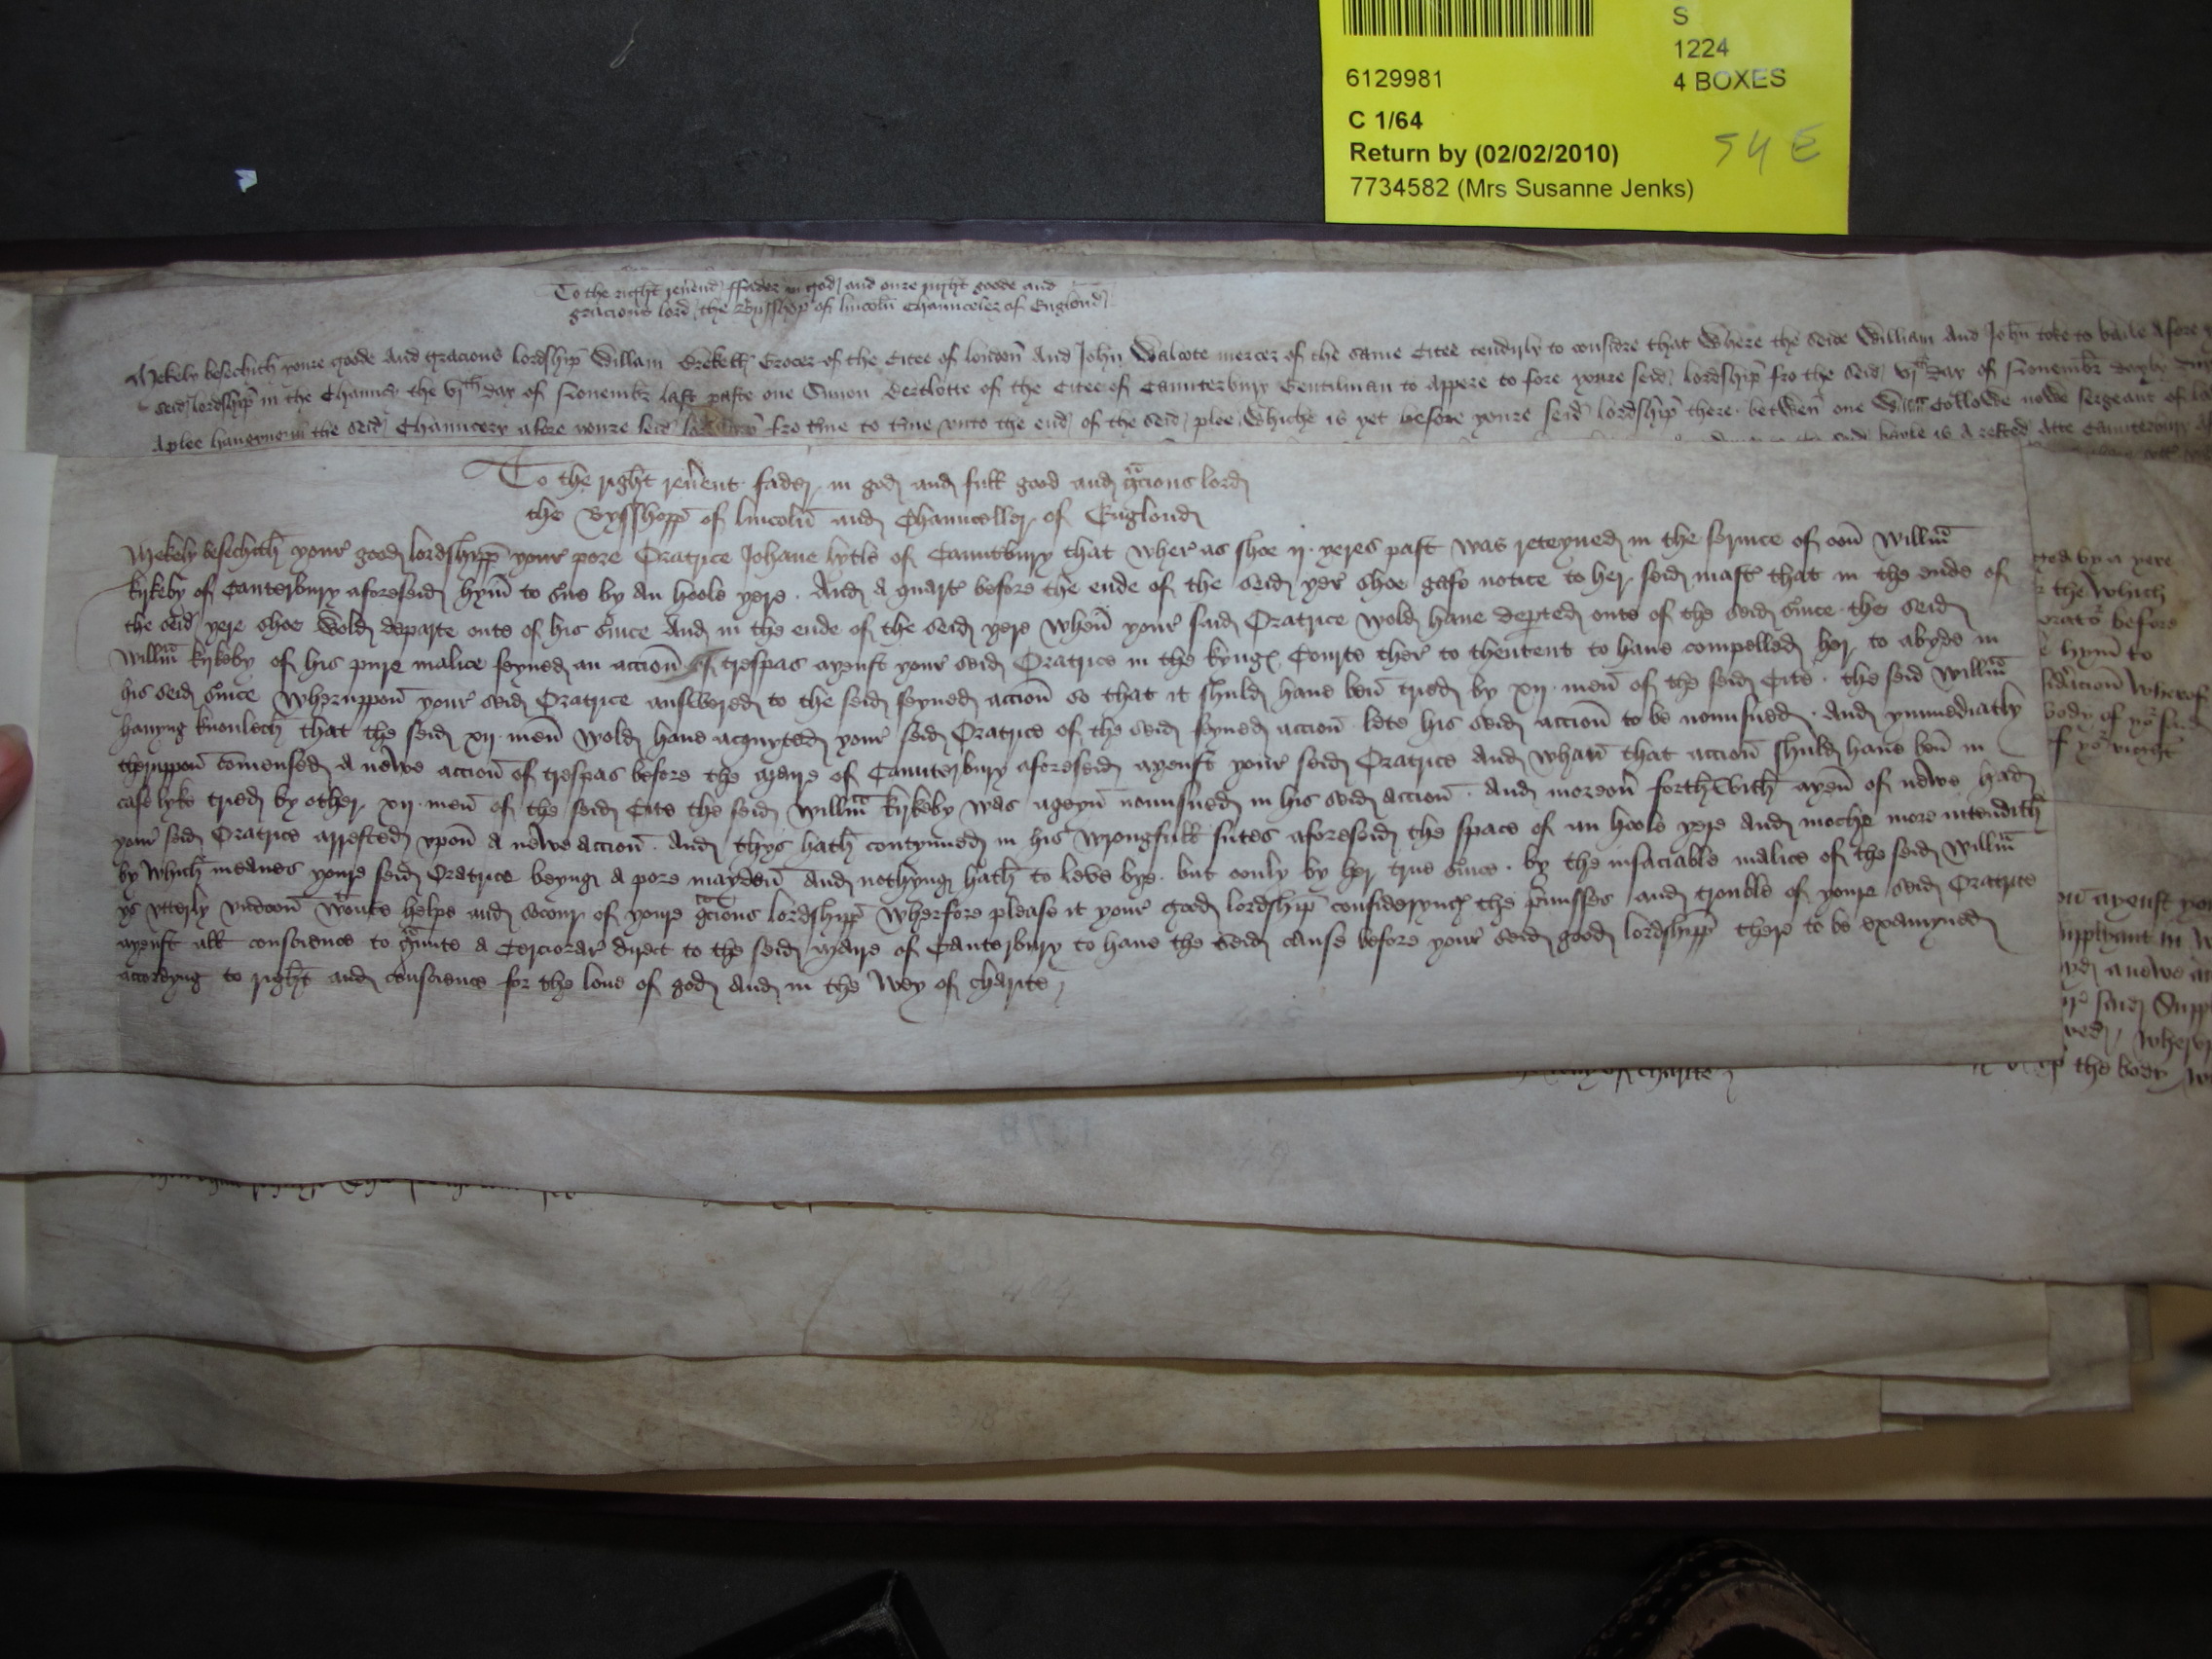 S
1224
6129981
4 BOXES
C 1/64
Return by (02/02/2010)
54 E
7734582 (Mrs Susanne Jenks)
To the right reũend ffader in god and oure right goode and
gracious lord the Bysshop of lincoln Chaunceler of Englond
Mekely besechith youre goode and gracious lordship William Crekett Grocer of the Citee of london And John Walcote mercer of the same Citee tendirly to considre that Where the seide William And John toke to baile afore
seid lordship in the Chauncˀ the vjth day of Nouembr last paste one Simon Bertlotte of the Citee of Caunterbury Gentilman to Appere to fore youre seid lordship fro the seid vjth day of Nouembr day by day
A plee hangyng in the seid Chauncery afore youre seid lordship fro tyme to tyme vnto the end of the seid plee Whiche is yet before youre seid lordship there betwen one Willm Collowe nowe sergeant of
bayle is A rested Atte Caunterbury
To the right reũent fader in god and full good and gracious lord
the Bysshopp of lincoln and Chaunceller of Englond
Mekely besechith your good lordshipp your pore Oratrice Johane lytle of Cauntbury that wher as shoe ij yeres past was reteyned in the seruice of oon Willm
kyrkeby of Canterbury aforeseid hym to sũe by an hoole yere . And a quartˀ before the ende of the seid yer shoe gafe notice to her seid mastˀ that in the ende of
the seid yere shoe wold departe oute of his sũice And in the ende of the seid yere when your said Oratrice wold haue depted oute of the seid sũice the seid
Willm kyrkeby of his pure malice feyned an accion of trespas ayenst your seid Oratrice in the kyngꝭ Courte ther to thentent to haue compelled her to abyde in
his seid sũice wheruppon your seid Oratrice answered to the seid feyned accion so that it shuld haue ben tried by xij men of the seid Cite . the seid Willm
hauyng knowlech that the seid xij men wold haue acquyted your seid Oratrice of the seid feyned accion lete his seid accion to be nonnsued . And ymmediatly
theruppon comensed a newe accion of trespas before the Maire of Caunterbury aforeseid ayenst your seid Oratrice And whan that accion shuld haue ben in
case lyke tried by other xij men of the seid Cite the seid Willm kyrkeby was ageyn nonnsued in his seid accion . And moreoũ forthwith ayen of newe had
your seid Oratrice arrested vpon a newe accion . And thys hath contynued in his wrongfull sutes aforeseid the space of an hoole yere And moche more intendith
by which meanes youre seid Oratrice beyng a pore mayden And nothyng hath to leve bye but oonly by her true sũice . by the insaciable malice of the seid Willm
ys vtterly vndoon wtoute helpe and socour of youre gracious lordshipp Wherfore please it your good lordship consideryng the pmisses and trouble of youre seid Oratrice
ayenst all conscience to graunte a Cerciorar direct to the seid Maire of Canterbury to haue the seid cause before your seid good lordshipp there to be examyned
accordyng to right and conscience for the loue of god And in the Wey of charite
by a yere
the Which
before
hym to
Wherof
body of yor said
ayenst
anewe
Wherv
of charite
the body